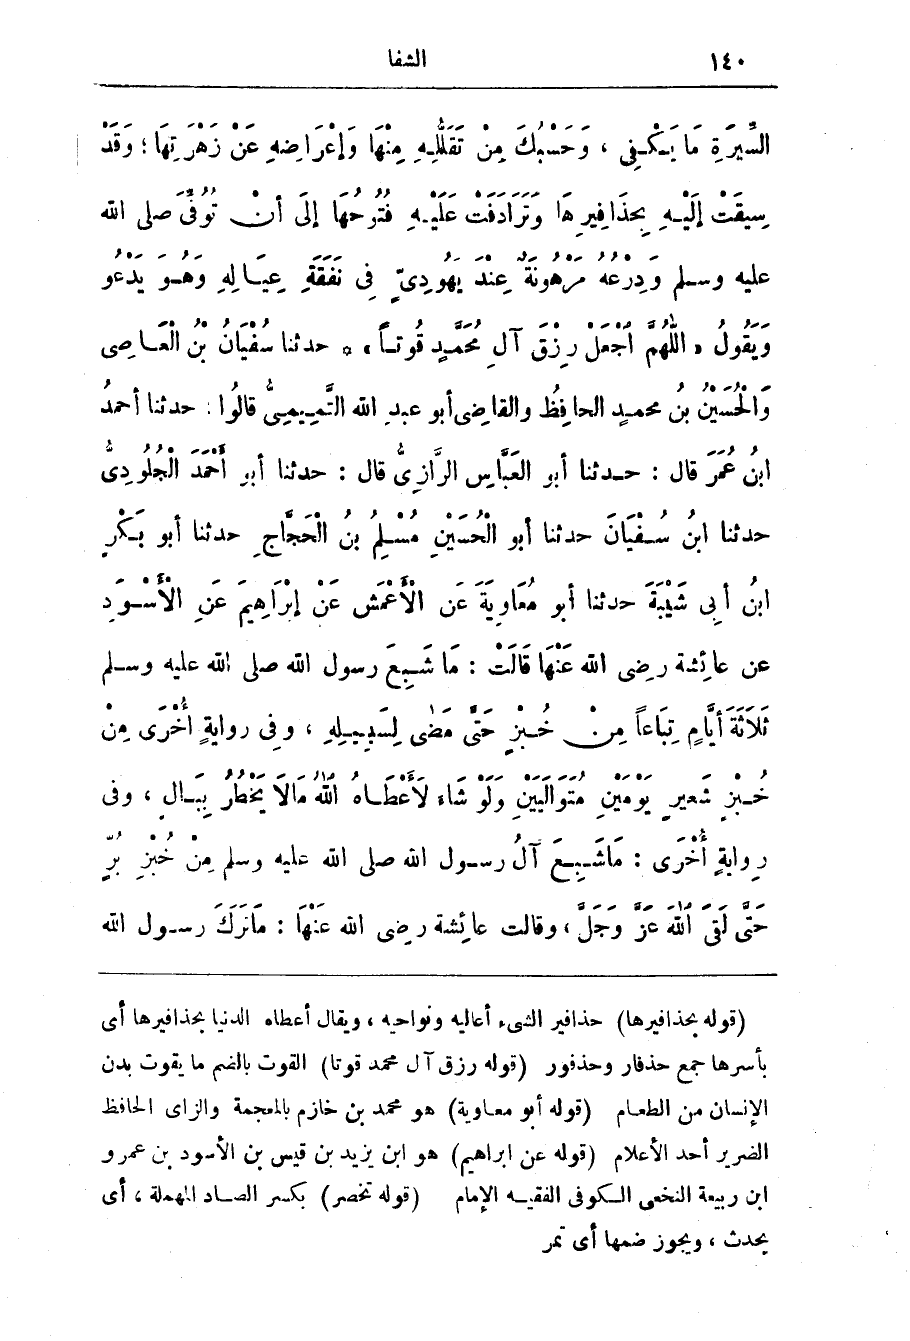 ١٤٠ الشفا
السِّيرَةِ مَا يَكْفِى ، وَحَسْبُكَ مِنْ تَقَلُّلِهِ مِنْهَا وَإِعْرَاضِهِ عَنْ زَهْرَتِهَا ؛ وَقَدْ
سِيقَتْ إِلَيْهِ بِحَذَافِيرِهَا وَتَرَادَفَتْ عَلَيْهِ فُتُوحُهَا إِلَى أَنْ تُوُفِّىَ صلى الله
عليه وسلم وَدِرْعُهُ مَرْهُونَةٌ عِنْدَ يَهُودِىٍّ فِى نَفَقَةِ عِيَالِهِ وَهُوَ يَدْعُو
وَيَقُولُ « اللَّهُمَّ اجْعَلْ رِزْقَ آلِ مُحَمَّدٍ قُوتاً » * حدثنا سُفْيَانُ بْنُ الْعَاصِى
وَالْحُسَيْنُ بنُ محمدٍ الحافِظُ والقاضِى أبو عبدِ الله التَّمِيمِىُّ قالُوا : حدثنا أحمدُ
ابنُ عُمَرَ قال : حدثنا أبو العَبَّاسِ الرَّازِىُّ قال : حدثنا أبو أَحْمَدَ الْجُلُودِىُّ
حدثنا ابنُ سُفْيَانَ حدثنا أبو الْحُسَيْنِ مُسْلِمُ بنُ الْحَجَّاجِ حدثنا أبو بَكْرِ
ابنُ أبِى شَيْبَةَ حدثنا أبو مُعَاوِيَةَ عَنِ الْأَعْمَشِ عَنْ إبْرَاهِيمَ عَنِ الْأَسْوَدِ
عن عائِشة رضى الله عَنْهَا قَالَتْ : مَا شَبِعَ رسول الله صلى الله عليه وسلم
ثَلَاثَةَ أَيَّامٍ تِبَاعاً مِنْ خُبْزٍ حَتَّى مَضَى لِسَبِيلِهِ ، وفِى روايةٍ أُخْرَى مِنْ
خُبْزِ شَعِيرٍ يَوْمَيْنِ مُتَوَالِيَيْنِ وَلَوْ شَاءَ لَأَعْطَاهُ اللهُ مَالَا يَخْطُرُ بِبَالٍ ، وفى
رِوايةٍ أُخْرَى : مَاشَبِعَ آلُ رسول الله صلى الله عليه وسلم مِنْ خُبْزِ بُرٍّ
حَتَّى لَقِىَ اللهَ عَزَّ وَجَلَّ ، وقالت عائِشة رضى الله عَنْهَا : مَاتَرَكَ رسول الله
(قوله بحذافيرها) حذافير الشىء أعاليه ونواحيه ، ويقال أعطاه الدنيا بحذافيرها أى
بأسرها جمع حذفار وحذفور (قوله رزق آل محمد قوتا) القوت بالضم ما يقوت بدن
الإنسان من الطعام (قوله أبو معاوية) هو محمد بن خازم بالمعجمة والزاى الحافظ
الضرير أحد الأعلام (قوله عن ابراهيم) هو ابن يزيد بن قيس بن الأسود بن عمرو
ابن ربيعة النخعى الكوفى الفقيه الإمام (قوله تخصر) بكسر الصاد المهملة ، أى
يحدث ، ويجوز ضمها أى تمر